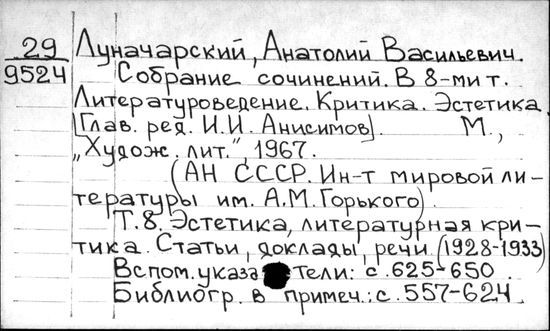 29
9524
Луначарский, Анатолий Васильевич.
Собрание сочинений. В 8-ми т.
Литературоведение. Критика. Эстетика.
[Глав. ред. И.И. Анисимов]. М.,
„Худож. лит.", 1967.
(АН СССР. Ин-т мировой ли-
тературы им. А.М. Горького).
Т. 8. Эстетика, литературная кри-
тика. Статьи, доклады, речи (1928-1933)
Вспом. указатели: с. 625-650.
Библиогр. в примеч.: с. 557-624.